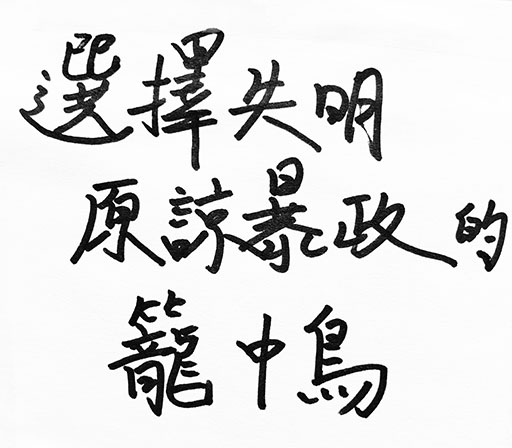 選擇失明
原諒暴政的
籠中鳥